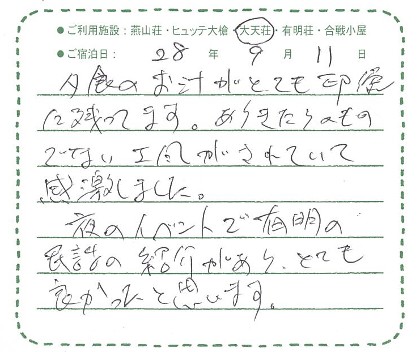 ●ご利用施設：燕山荘・ヒュッテ大槍・大天荘・有明荘・合戦小屋
●ご宿泊日： 28 年 9 月 11 日
夕食のお汁がとても印象
に残ってます。ありきたりのもの
でない工夫がされていて
感激しました。
夜のイベントで有明の
民話の紹介があり、とても
良かったと思います。